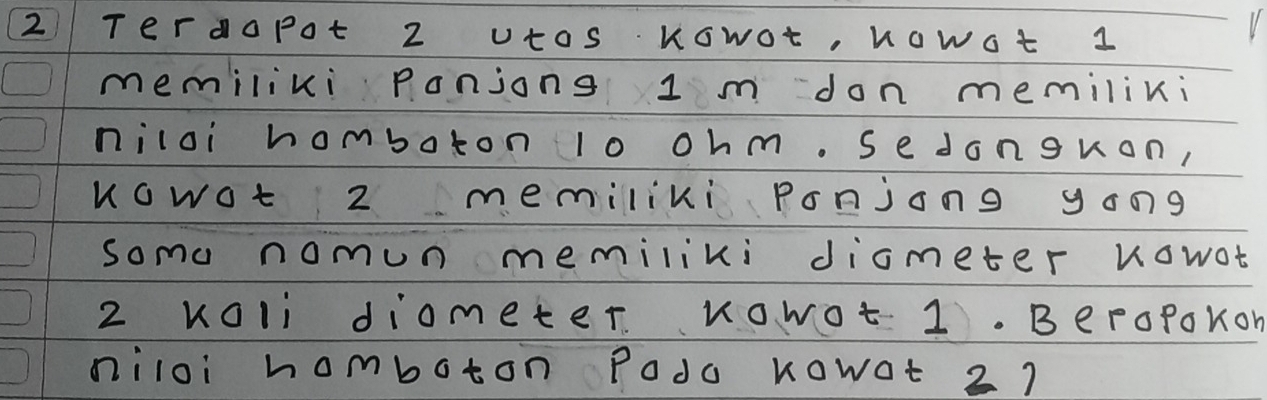 2 Terdapat 2 utas kawat, kawat 1
memiliki Panjang 1 m dan memiliki
nilai hambatan 10 ohm. Sedangkan,
kawat 2 memiliki Panjang yang
sama namun memiliki diameter kawat
2 kali diameter kawat 1. Berapakah
nilai hambatan Pada kawat 2?